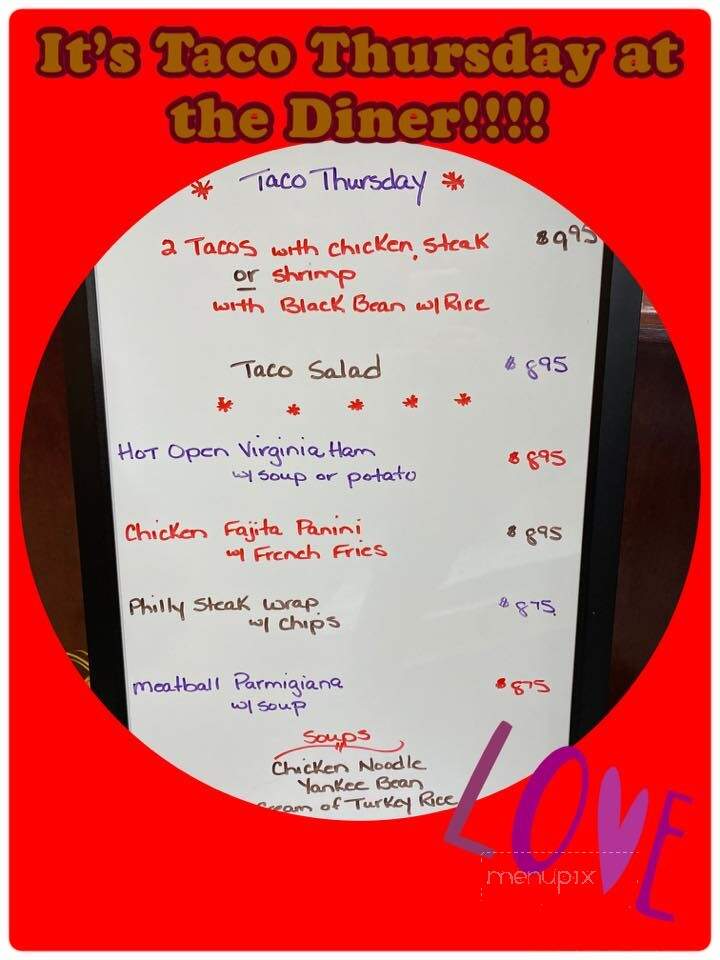 It's Taco Thursday at
the Diner!!!!
* Taco Thursday *
2 Tacos with chicken, steak $9.95
or shrimp
with Black Bean w/ Rice
Taco Salad $8.95
* * * * *
Hot Open Virginia Ham $8.95
w/ soup or potato
Chicken Fajita Panini $8.95
w/ French Fries
Philly Steak Wrap $8.75
w/ Chips
Meatball Parmigiana $8.75
w/ soup
Soups
Chicken Noodle
Yankee Bean
Cream of Turkey Rice
LOVE
menupix